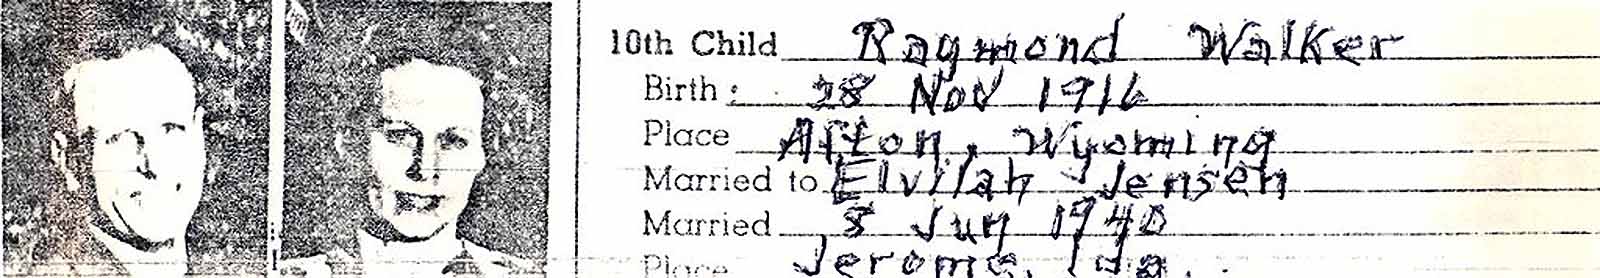 10th Child Raymond Walker
Birth: 28 Nov 1916
Place Afton, Wyoming
Married to Elvilah Jensen
Married 8 Jun 1940
Place Jerome, Ida.